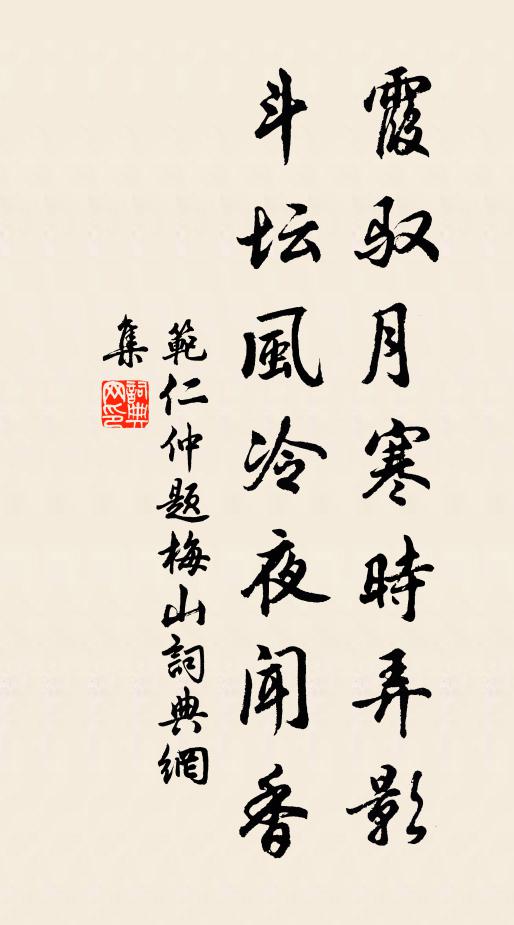 霞驭月寒時弄影
斗坛風冷夜闻香
範仁仲题梅山詞典網
集
詞典
网印